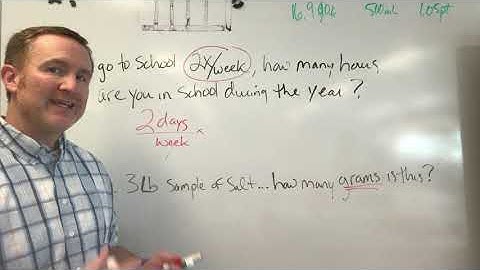 16.9 oz 500mL 1.05pt
go to School 2x/week, how many hours
are you in School during the year?
2 days x
week
3Lb Sample of Salt... how many grams is this?